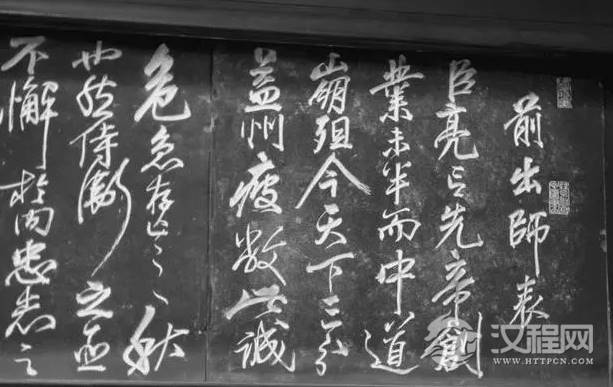 前出師表
臣亮言先帝創
業未半而中道
崩殂今天下三分
益州疲敝此誠
危急存亡之秋
也然侍衛之臣
不懈於內忠志之
汉程网
WWW.HTTPCN.COM